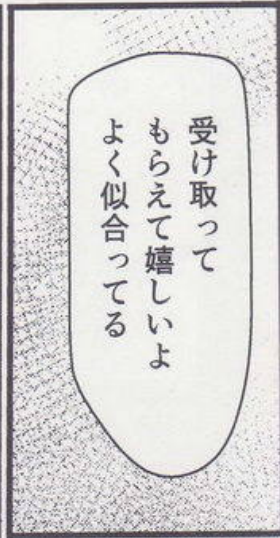 受け取って
もらえて嬉しいよ
よく似合ってる